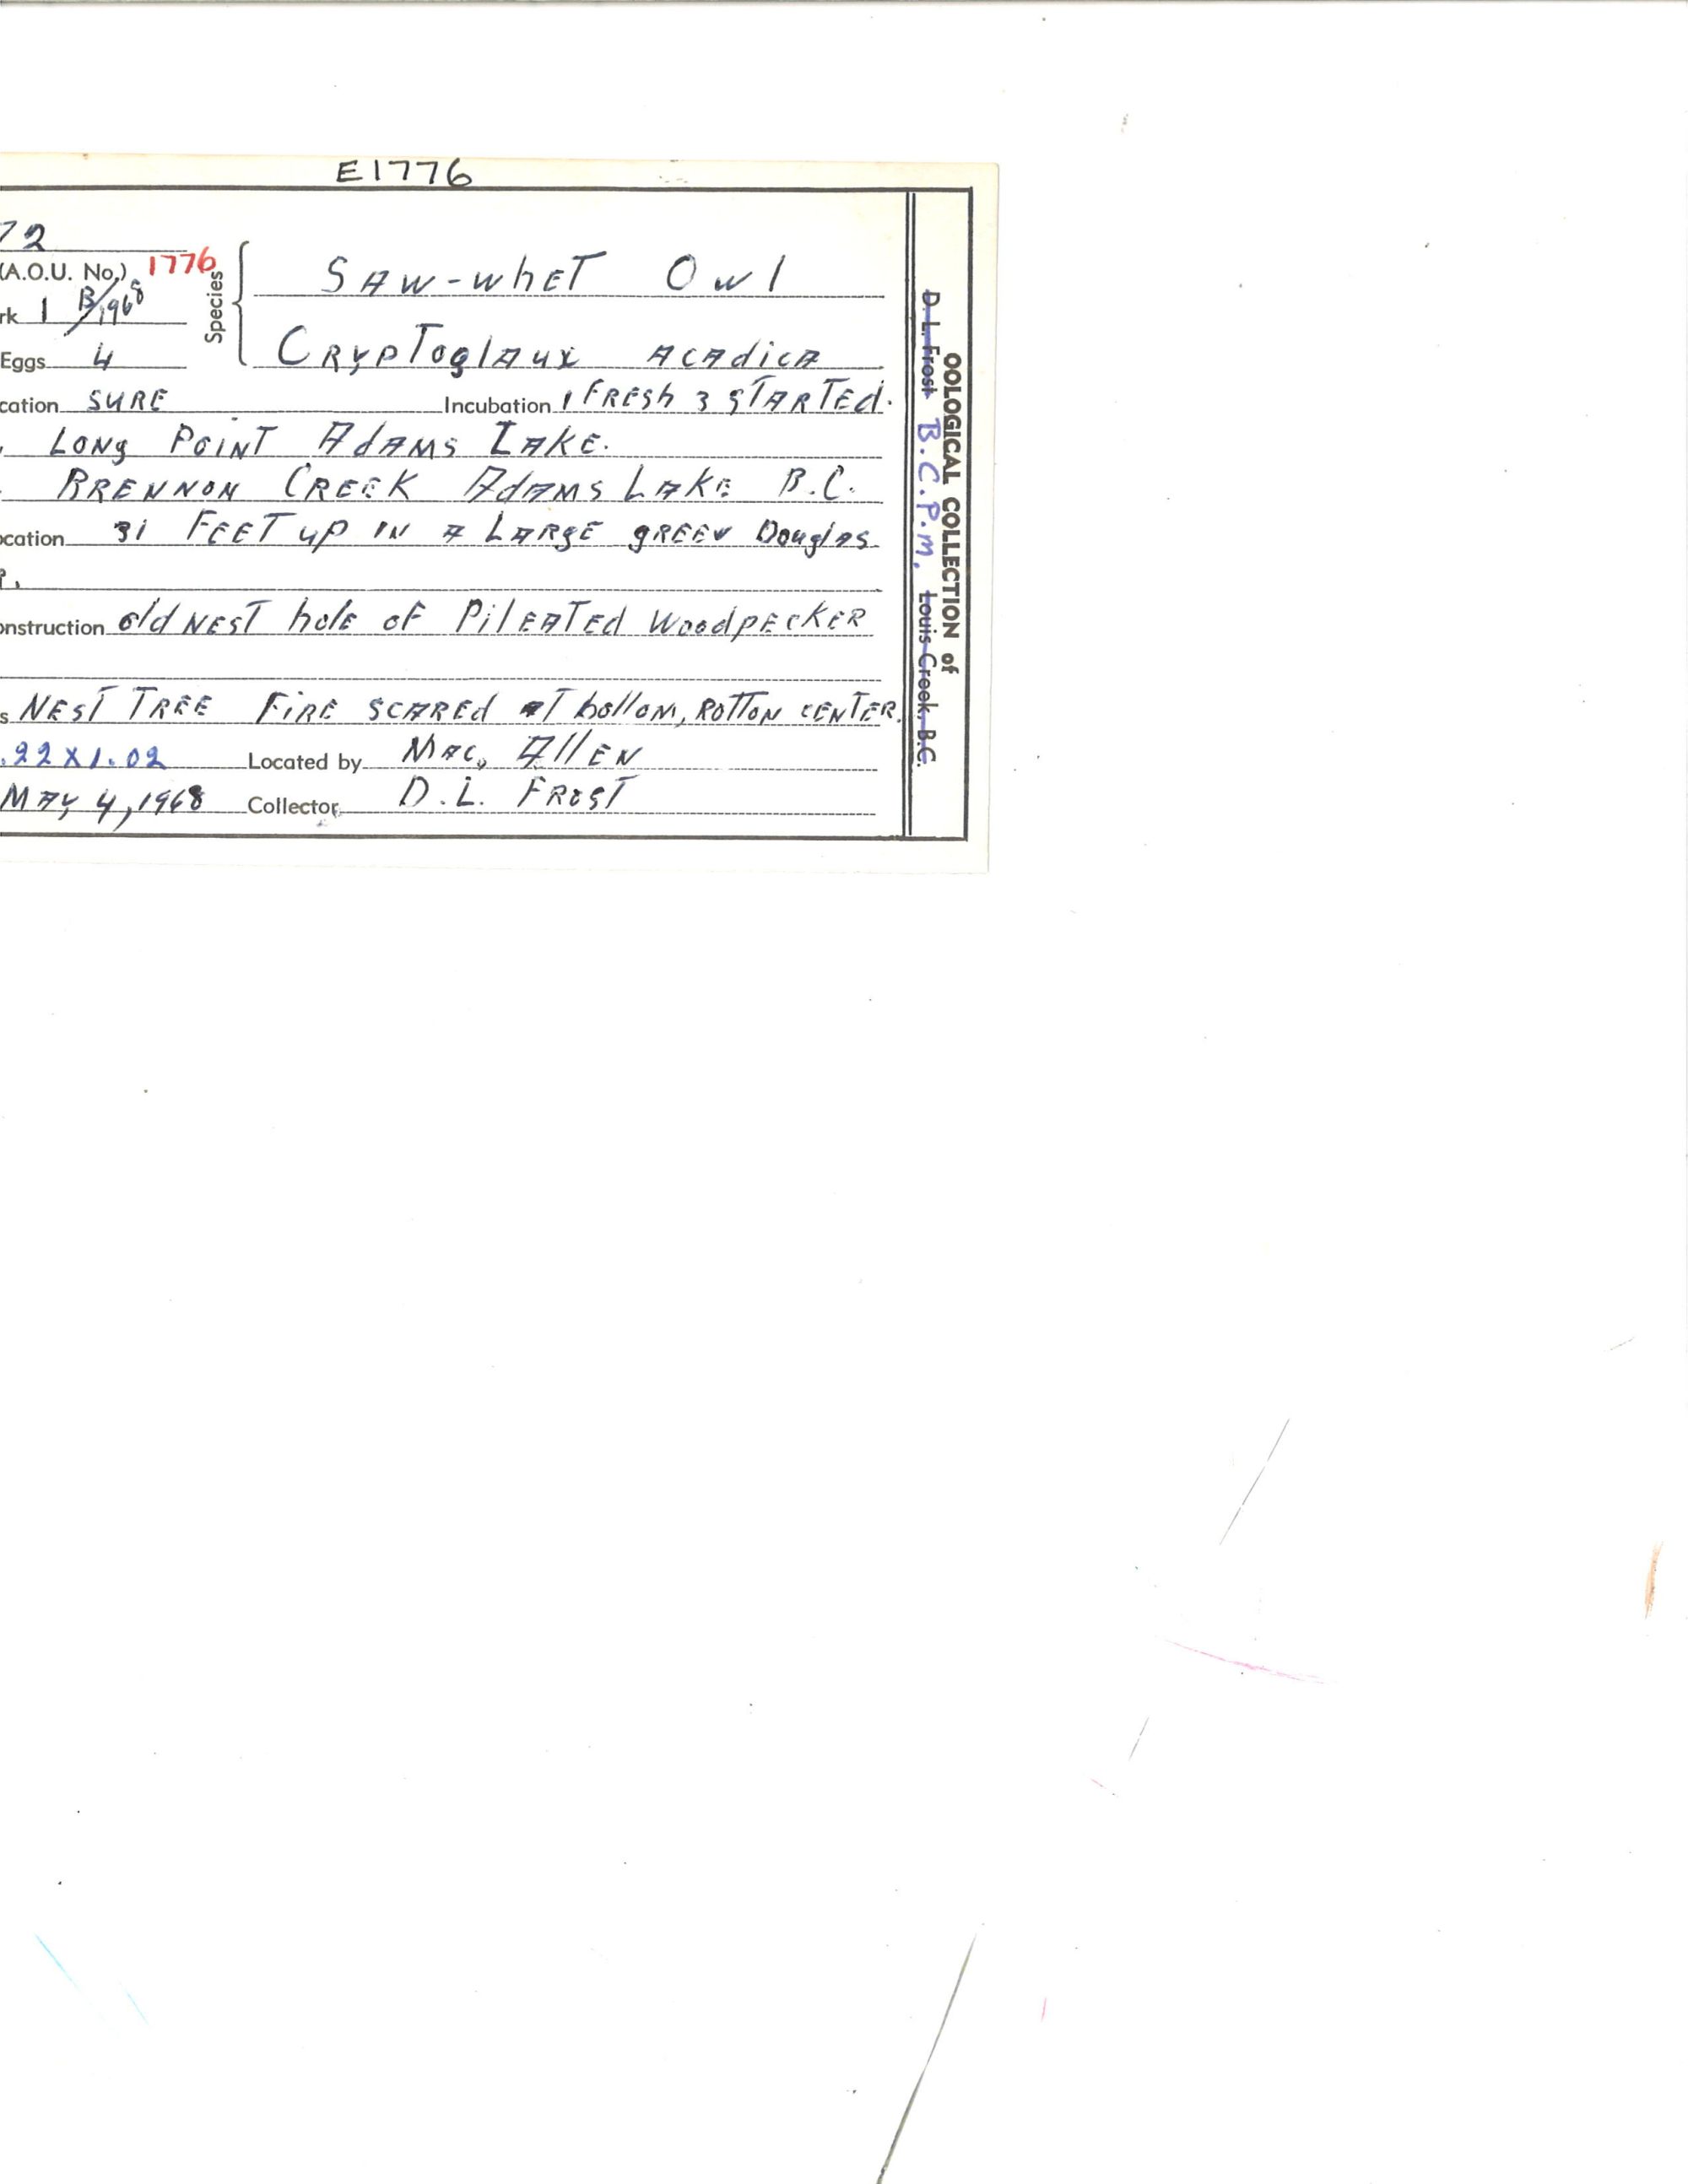 E1776
72
(A.O.U. No.) 1776
rk 1 B/1968
Eggs 4
Species
SAW-WhET Owl
CRYPToglAux ACAdicA
cation SURE Incubation 1 FRESh 3 STARTEd.
LONg POINT AdAMS LAKE.
BRENNON CREEK AdAMS LAKE B.C.
ocation 31 FEET up IN A LARgE gREEN DouglAs
onstruction old NEST holE oF PilEATEd WoodpECKER
s NEST TREE FiRE SCAREd AT boTTom, RoTToN CENTER.
.22 X 1.02 Located by MAC. AllEN
MAy 4, 1968 Collector D.L. FROST
OOLOGICAL COLLECTION of
D. L. Frost B.C.P.M. Louis Creek, B.C.